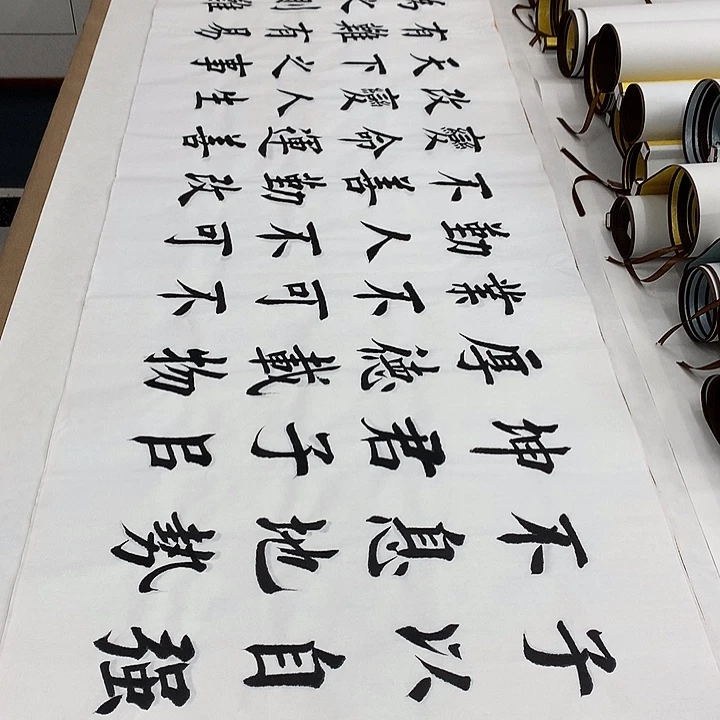 子以自强
不息地勢
坤君子日
厚德載物
業不可不
勤人不可
不善勤改
變命運善
改變人生
天下之事
有難有易